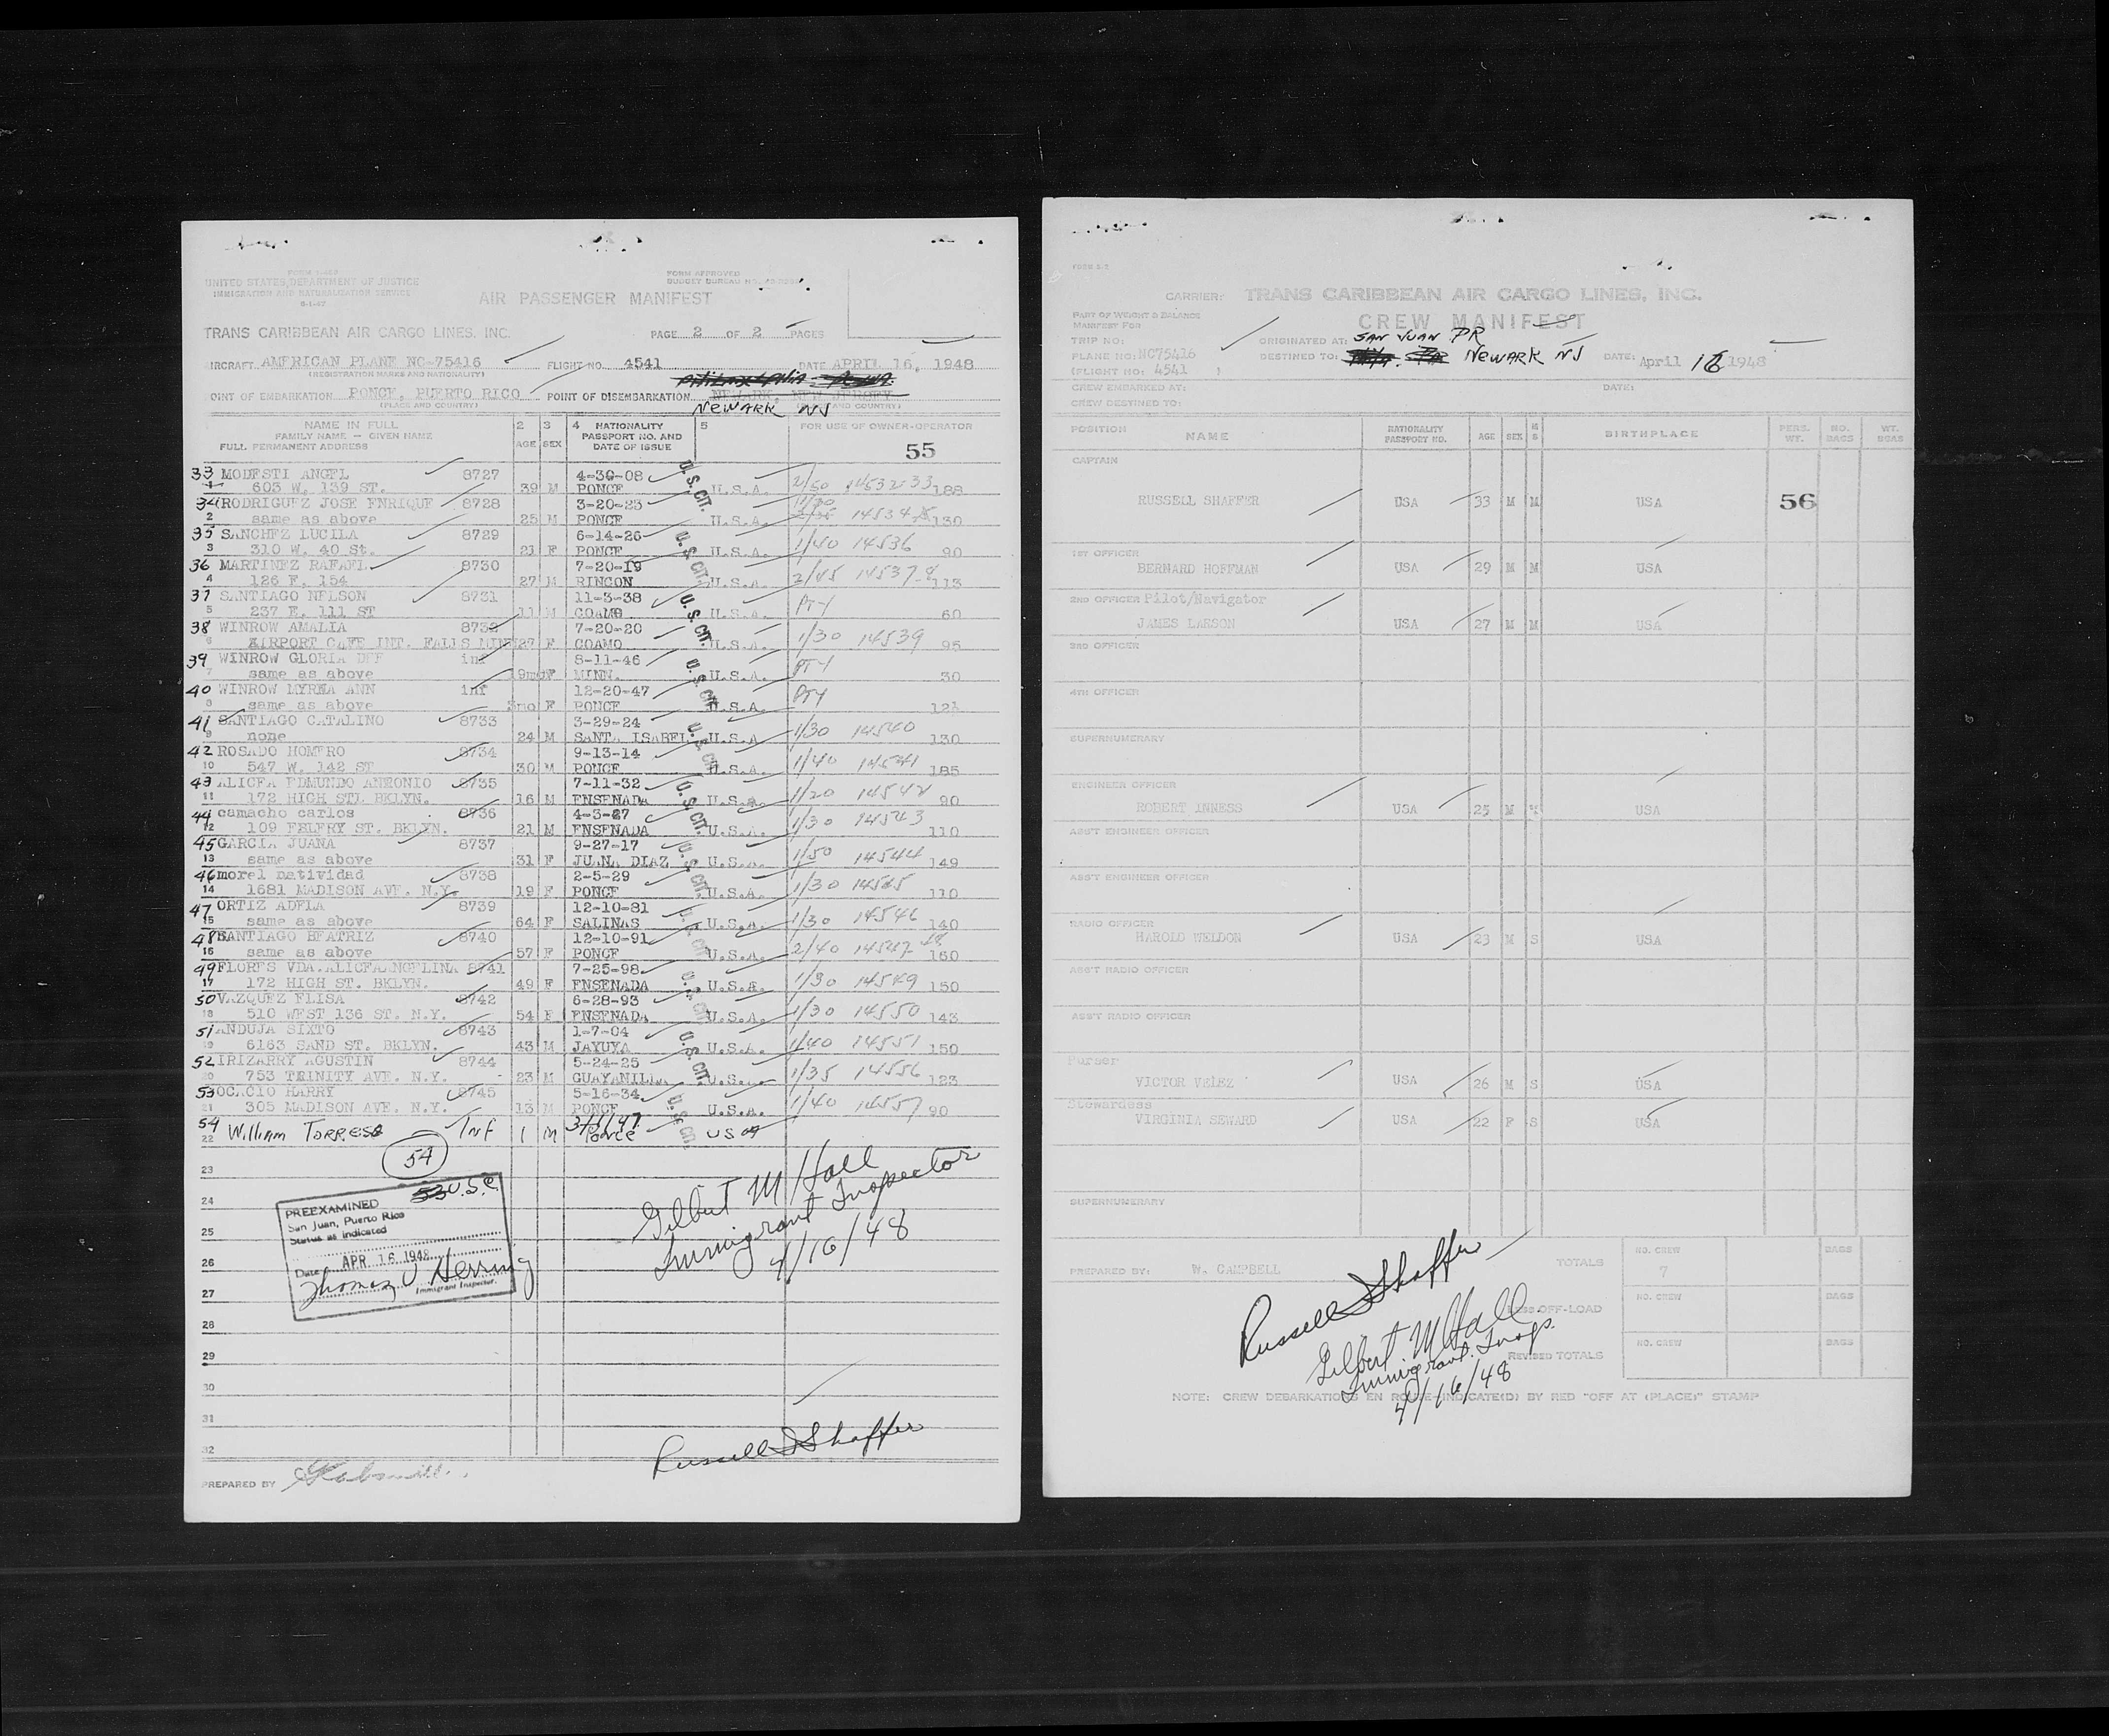 FORM I-466
UNITED STATES DEPARTMENT OF JUSTICE
IMMIGRATION AND NATURALIZATION SERVICE
FORM APPROVED
BUDGET BUREAU NO.
AIR PASSENGER MANIFEST
TRANS CARIBBEAN AIR CARGO LINES, INC.
PAGE 2 OF 2 PAGES
AIRCRAFT AMERICAN PLANE NC-75416 FLIGHT NO. 4541 DATE APRIL 16, 1948
(REGISTRATION MARKS AND NATIONALITY)
OINT OF EMBARKATION PONCE, PUERTO RICO POINT OF DISEMBARKATION NEWARK, NEW JERSEY
(PLACE AND COUNTRY) NEWARK NJ AND COUNTRY)
NAME IN FULL 2 3 4 NATIONALITY 5 FOR USE OF OWNER-OPERATOR
FAMILY NAME — GIVEN NAME AGE SEX PASSPORT NO. AND
FULL PERMANENT ADDRESS DATE OF ISSUE 55
33 MODESTI ANGEL 8727 4-30-08
1 603 W. 139 ST. 39 M PONCE U.S.A. 2/50 14532 33 188
34 RODRIGUEZ JOSE ENRIQUE 8728 3-20-23 1/30
2 same as above 25 M PONCE U.S.A. 14534 130
35 SANCHEZ LUCILA 8729 6-14-26
3 310 W. 40 St. 21 F PONCE U.S.A. 1/40 14536 90
36 MARTINEZ RAFAEL 8730 7-20-19
4 126 E. 154 27 M RINCON U.S.A. 2/45 14537-8 113
37 SANTIAGO NELSON 8731 11-3-38
5 237 E. 111 ST 11 M COAMO U.S.A. 60
38 WINROW AMALIA 8732 7-20-20
6 AIRPORT CAFE INT. FALLS MINN 27 F COAMO U.S.A. 1/30 14539 95
39 WINROW GLORIA DEE inf 8-11-46
7 same as above 19mo F MINN. U.S.A. 30
40 WINROW MYRNA ANN inf 12-20-47
8 same as above 3mo F PONCE U.S.A. 12½
41 SANTIAGO CATALINO 8733 3-29-24
9 none 24 M SANTA ISABEL U.S.A 1/30 14540 130
42 ROSADO HOMERO 8734 9-13-14
10 547 W. 142 ST 30 M PONCE U.S.A. 1/40 14541 185
43 ALICEA EDMUNDO ANTONIO 8735 7-11-32
11 172 HIGH ST. BKLYN. 16 M ENSENADA U.S.A. 1/20 14542 90
44 camacho carlos 8736 4-3-27
12 109 FELFRY ST. BKLYN. 21 M ENSENADA U.S.A. 1/30 14543 110
45 GARCIA JUANA 8737 9-27-17
13 same as above 31 F JUANA DIAZ U.S.A. 1/50 14544 149
46 morel natividad 8738 2-5-29
14 1681 MADISON AVE. N.Y. 19 F PONCE U.S.A. 1/30 14545 110
47 ORTIZ ADELA 8739 12-10-81
15 same as above 64 F SALINAS U.S.A. 1/30 14546 140
48 SANTIAGO BEATRIZ 8740 12-10-91
16 same as above 57 F PONCE U.S.A. 2/40 14547 48 160
49 FLORES VDA.ALICEA ANGELINA 8741 7-25-98
17 172 HIGH ST. BKLYN. 49 F ENSENADA U.S.A. 1/30 14549 150
50 VAZQUEZ ELISA 8742 6-28-93
18 510 WEST 136 ST. N.Y. 54 F ENSENADA U.S.A. 1/30 14550 143
51 ANDUJA SIXTO 8743 1-7-04
19 6163 SAND ST. BKLYN. 43 M JAYUYA U.S.A. 1/40 14551 150
52 IRIZARRY AGUSTIN 8744 5-24-25
20 753 TRINITY AVE. N.Y. 23 M GUAYANILLA U.S. 1/35 14556 123
53 OCACIO HARRY 8745 5-16-34
21 305 MADISON AVE. N.Y. 13 M PONCE U.S.A. 1/40 14557 90
54 William Torres Inf 1 M 3/1/47
22 Ponce USA
54
U. S. CIT.
23
24
25
26
27
28
29
30
31
32
53 U.S.C.
PREEXAMINED
San Juan, Puerto Rico
Status as indicated
Date APR 16 1948
Thomas V Herring
Immigrant Inspector.
Gilbert M Hall
Immigrant Inspector
4/16/48
Russell S Shaffer
PREPARED BY
CARRIER: TRANS CARIBBEAN AIR CARGO LINES, INC.
PART OF WEIGHT & BALANCE
MANIFEST FOR
CREW MANIFEST
TRIP NO: ORIGINATED AT: SAN JUAN PR
PLANE NO: NC75416 DESTINED TO: NEWARK NJ DATE: April 16 1948
(FLIGHT NO: 4541 )
CREW EMBARKED AT: DATE:
CREW DESTINED TO:
POSITION NAME NATIONALITY PASSPORT NO. AGE SEX M S BIRTHPLACE PERS. WT. NO. BAGS WT. BGAS
CAPTAIN
RUSSELL SHAFFER USA 33 M M USA 56
1ST OFFICER
BERNARD HOFFMAN USA 29 M M USA
2ND OFFICER Pilot/Navigator
JAMES LARSON USA 27 M M USA
3RD OFFICER
4TH OFFICER
SUPERNUMERARY
ENGINEER OFFICER
ROBERT INNESS USA 25 M USA
ASS'T ENGINEER OFFICER
ASS'T ENGINEER OFFICER
RADIO OFFICER
HAROLD WELDON USA 23 M S USA
ASS'T RADIO OFFICER
ASS'T RADIO OFFICER
Purser
VICTOR VELEZ USA 26 M S USA
Stewardess
VIRGINIA SEWARD USA 22 F S USA
SUPERNUMERARY
PREPARED BY: W. CAMPBELL TOTALS NO. CREW 7 BAGS
Russell S Shaffer
LESS OFF-LOAD NO. CREW BAGS
Gilbert M Hall
Immigrant. Insp.
REVISED TOTALS NO. CREW BAGS
4/16/48
NOTE: CREW DEBARKATIONS EN ROUTE INDICATE(D) BY RED "OFF AT (PLACE)" STAMP